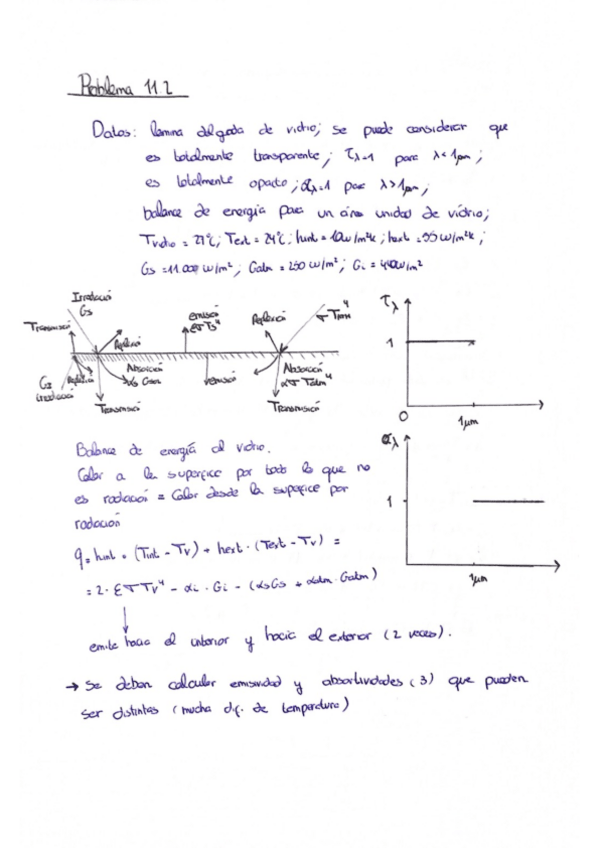 Problema 11.2
Datos: lámina delgada de vidrio; se puede considerar que
es totalmente transparente; τλ=1 para λ<1μm;
es totalmente opaco; αλ=1 para λ>1μm;
balance de energía para un área unidad de vidrio;
Tvidrio = 27°C; Text = 24°C; hint = 10w/m²k; hext = 55w/m²k;
Gs = w/m²; Gatm = 250 w/m²; Gi = 440w/m²
Irradiació
Gs
Transmisió
Reflexió
emisió
εσTs⁴
Reflexió
σTatm⁴
Gi
irradiació
Reflexió
Absorció
αs Gsol
Transmisió
emisió
Absorció
ασTatm⁴
Transmisió
τλ
1
0
1μm
αλ
1
1μm
Balance de energía al vidrio.
Calor a la superficie por todo lo que no
es radiació = calor desde la superficie por
radiación
q = hint · (Tint - Tv) + hext · (Text - Tv) =
= 2 · εσTv⁴ - αi · Gi - (αsGs + αatm · Gatm)
emite hacia el interior y hacia el exterior (2 veces).
→ Se deben calcular emisividad y absortividades (3) que pueden
ser distintas (mucha dif. de temperatura)